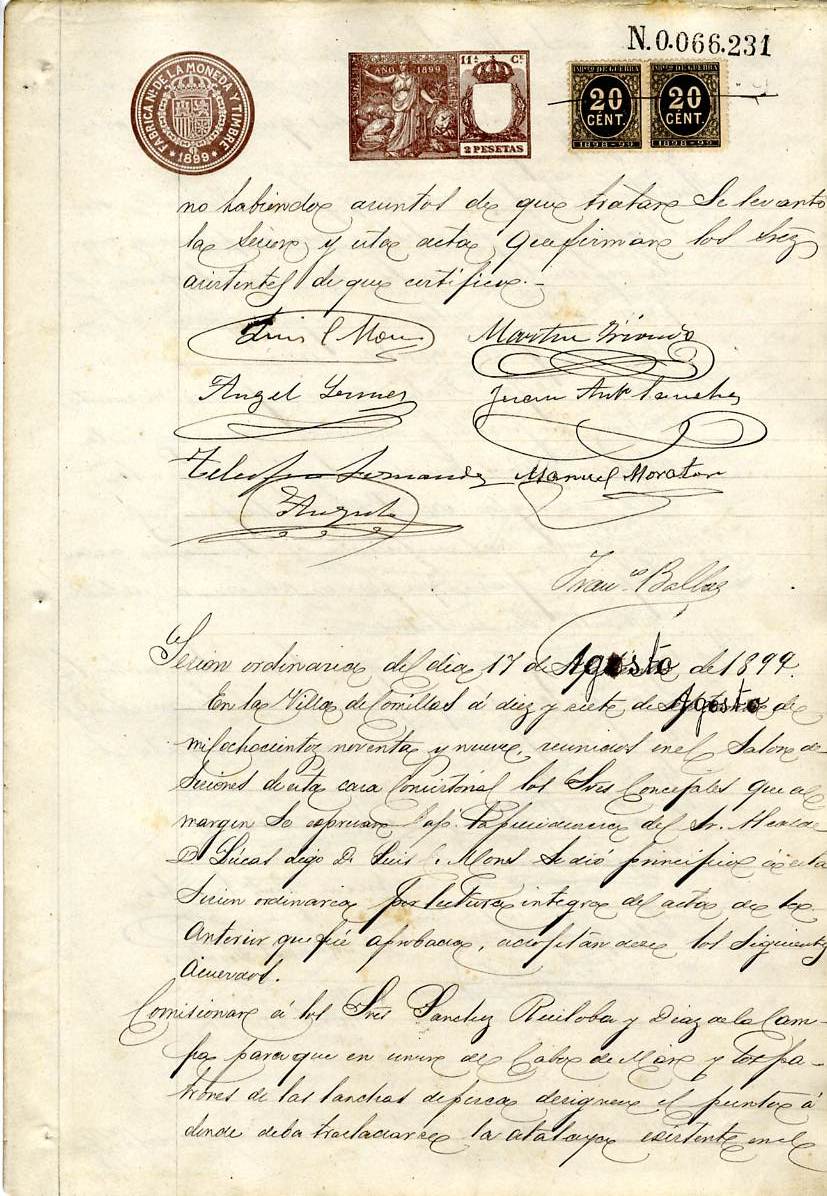 N.0.066.231
FABRICA NL. DE LA MONEDA Y TIMBRE
* 1899 *
AÑO 1899
11ª Cª
2 PESETAS
IMPtº DE GUERRA
20
CENT.
1898-99
IMPtº DE GUERRA
20
CENT.
1898-99
no habiendo asuntos de que tratar se levanto
la sesion y esta acta que firman los Sres
asistentes de que certifico.-
Luis
Martin
Angel
Juan Antº Sanchez
Telesforo Fernandez Manuel Morator
Angulo
Francº
Sesion ordinaria del dia 17 de Agosto de 1899.
En la Villa de Comillas á diez y siete de Agosto de
mil ochocientos noventa y nueve, reunidos en el Salon de
Sesiones de esta casa Consistorial los Sres Concejales que al
margen se espresan bajo la presidencia del Sr. Alcalde
D. Lúcas digo D. Luis Mons se dió principio á esta
sesion ordinaria por lectura integra del acta de la
anterior que fué aprobada, adoptandose los siguientes
acuerdos.
Comisionar á los Sres Sanchez Ruiloba y Diaz de la Cam-
pa para que en union del Cabo de Mar y los pa-
trones de las lanchas de pesca designen el punto á
donde deba trasladarse la atalaya existente en el